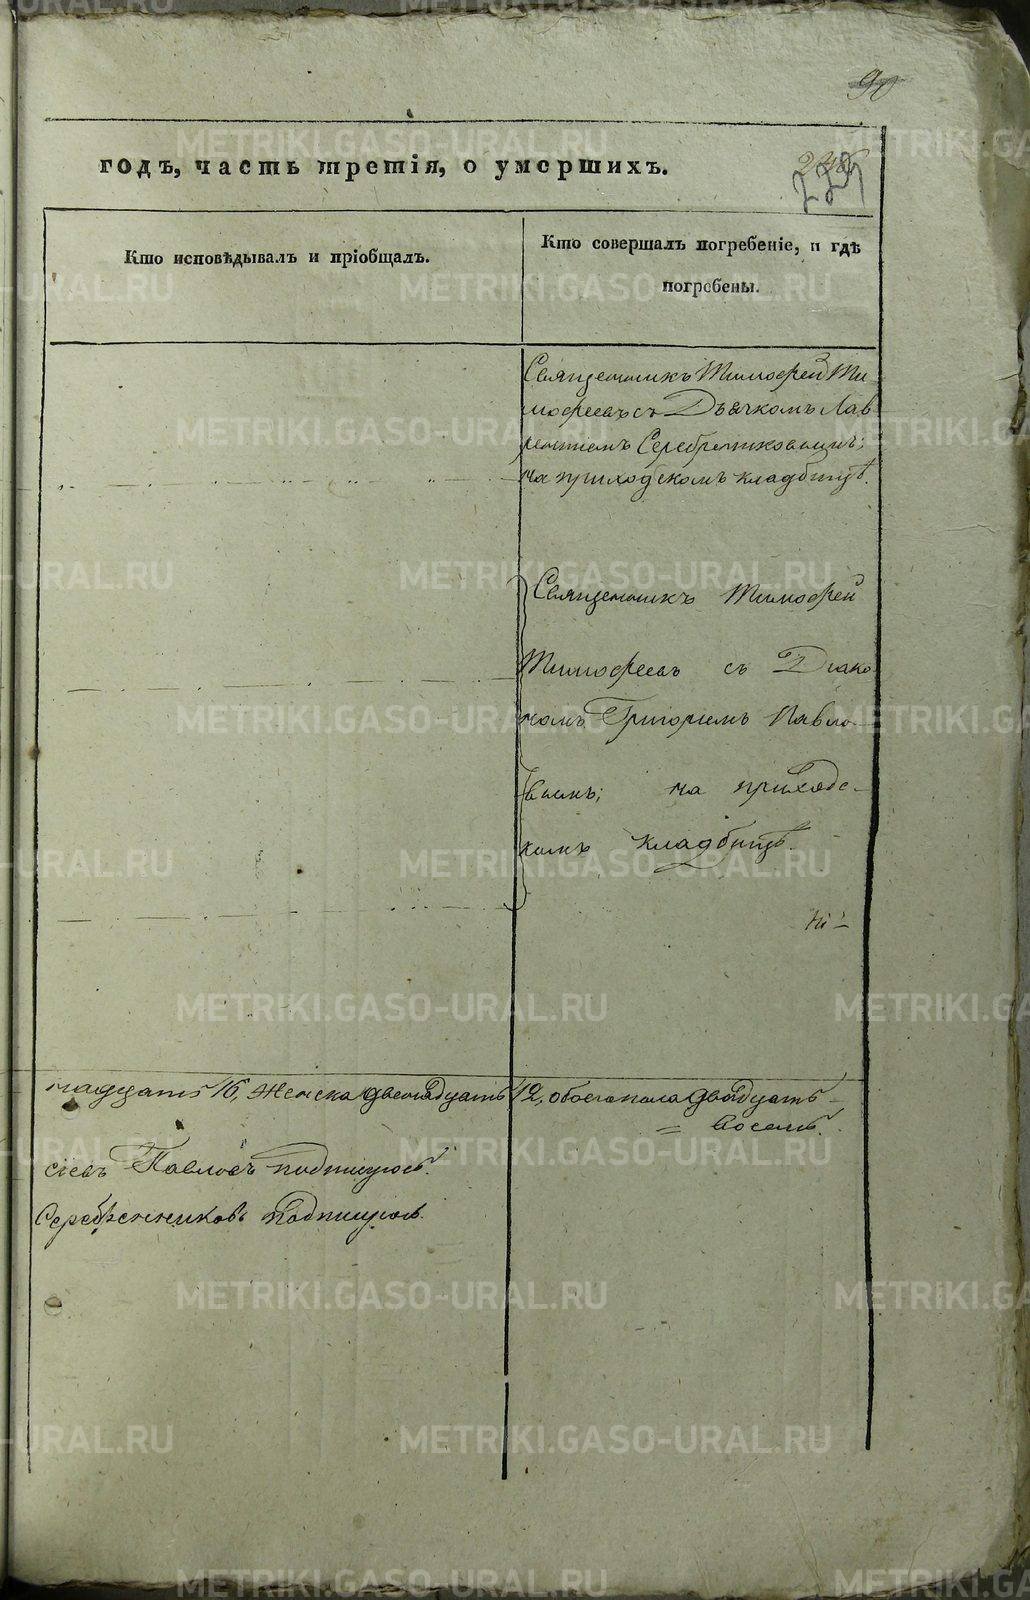 90
годъ, часть третія, о умершихъ.
Кто исповѣдывалъ и пріобщалъ.
Кто совершалъ погребеніе, и гдѣ
погребены.
Священникъ Тимофей Ти-
мофеевъ съ Дьячкомъ Лав
рентіемъ Серебренниковымъ;
на приходскомъ кладбищѣ.
Священникъ Тимофей
Тимофеевъ съ Діако
номъ Григоріемъ Павло-
вымъ; на приходс-
комъ кладбищѣ.
надцать 16, женска двенадцать 12, обоего пола двадцать
= восемь.
сіевъ Павловъ подпишуюсь.
Серебренниковъ подпишуюсь.
METRIKI.GASO-URAL.RU